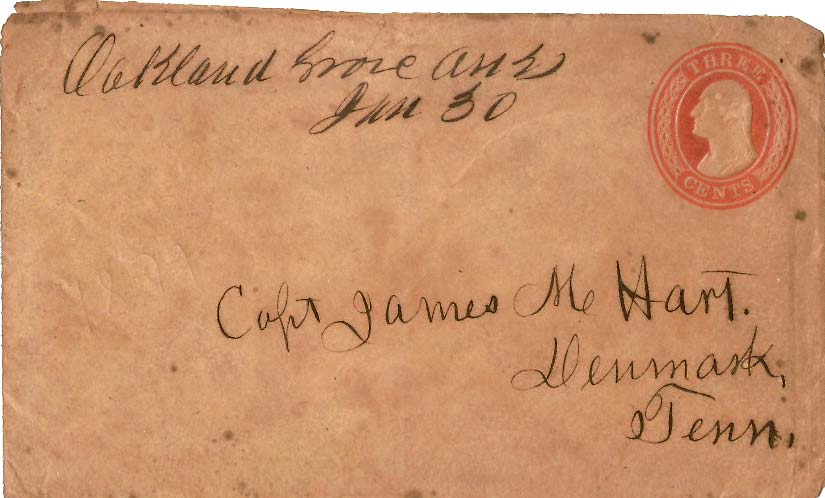 Oakland Grove Arks
Jan 30
THREE
CENTS
Capt James M Hart.
Denmark,
Tenn.